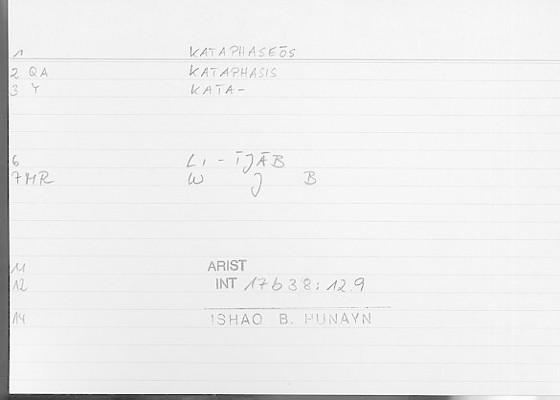 1 KATAPHASEŌS
2 QA KATAPHASIS
3 Y KATA-
6 LI-ĪJĀB
7 MR W J B
11 ARIST
12 INT 17b38:12.9
14 ISHAQ B. HUNAYN